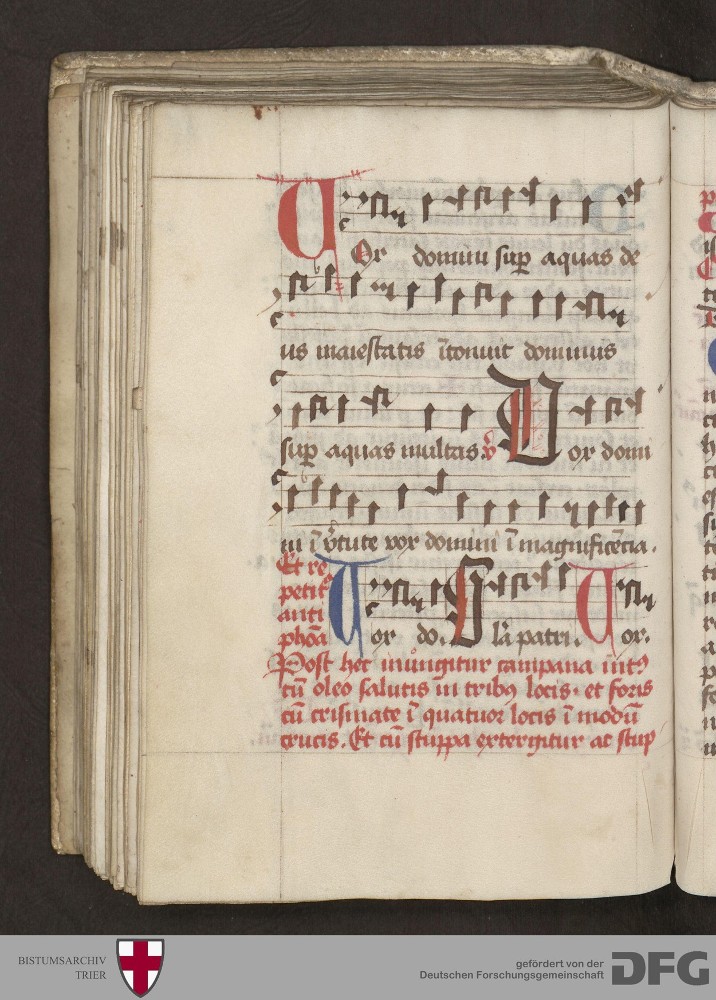 VOx domini sup aquas de
us maiestatis ītonuit dominus
sup aquas multas ꝟ Vox domi
ni ī vtute vox domini ī magnificēcia.
Et re
petitʳ
anti
phōa
Vox do. Glā patri. Vox.
Post hec inungitur campana intꝰ
cū oleo salutis in tribꝰ locis. et foris
cū crismate ī quatuor locis ī modū
crucis. Et cū stuppa extergitur ac stup
BISTUMSARCHIV
TRIER
gefördert von der
Deutschen Forschungsgemeinschaft
DFG